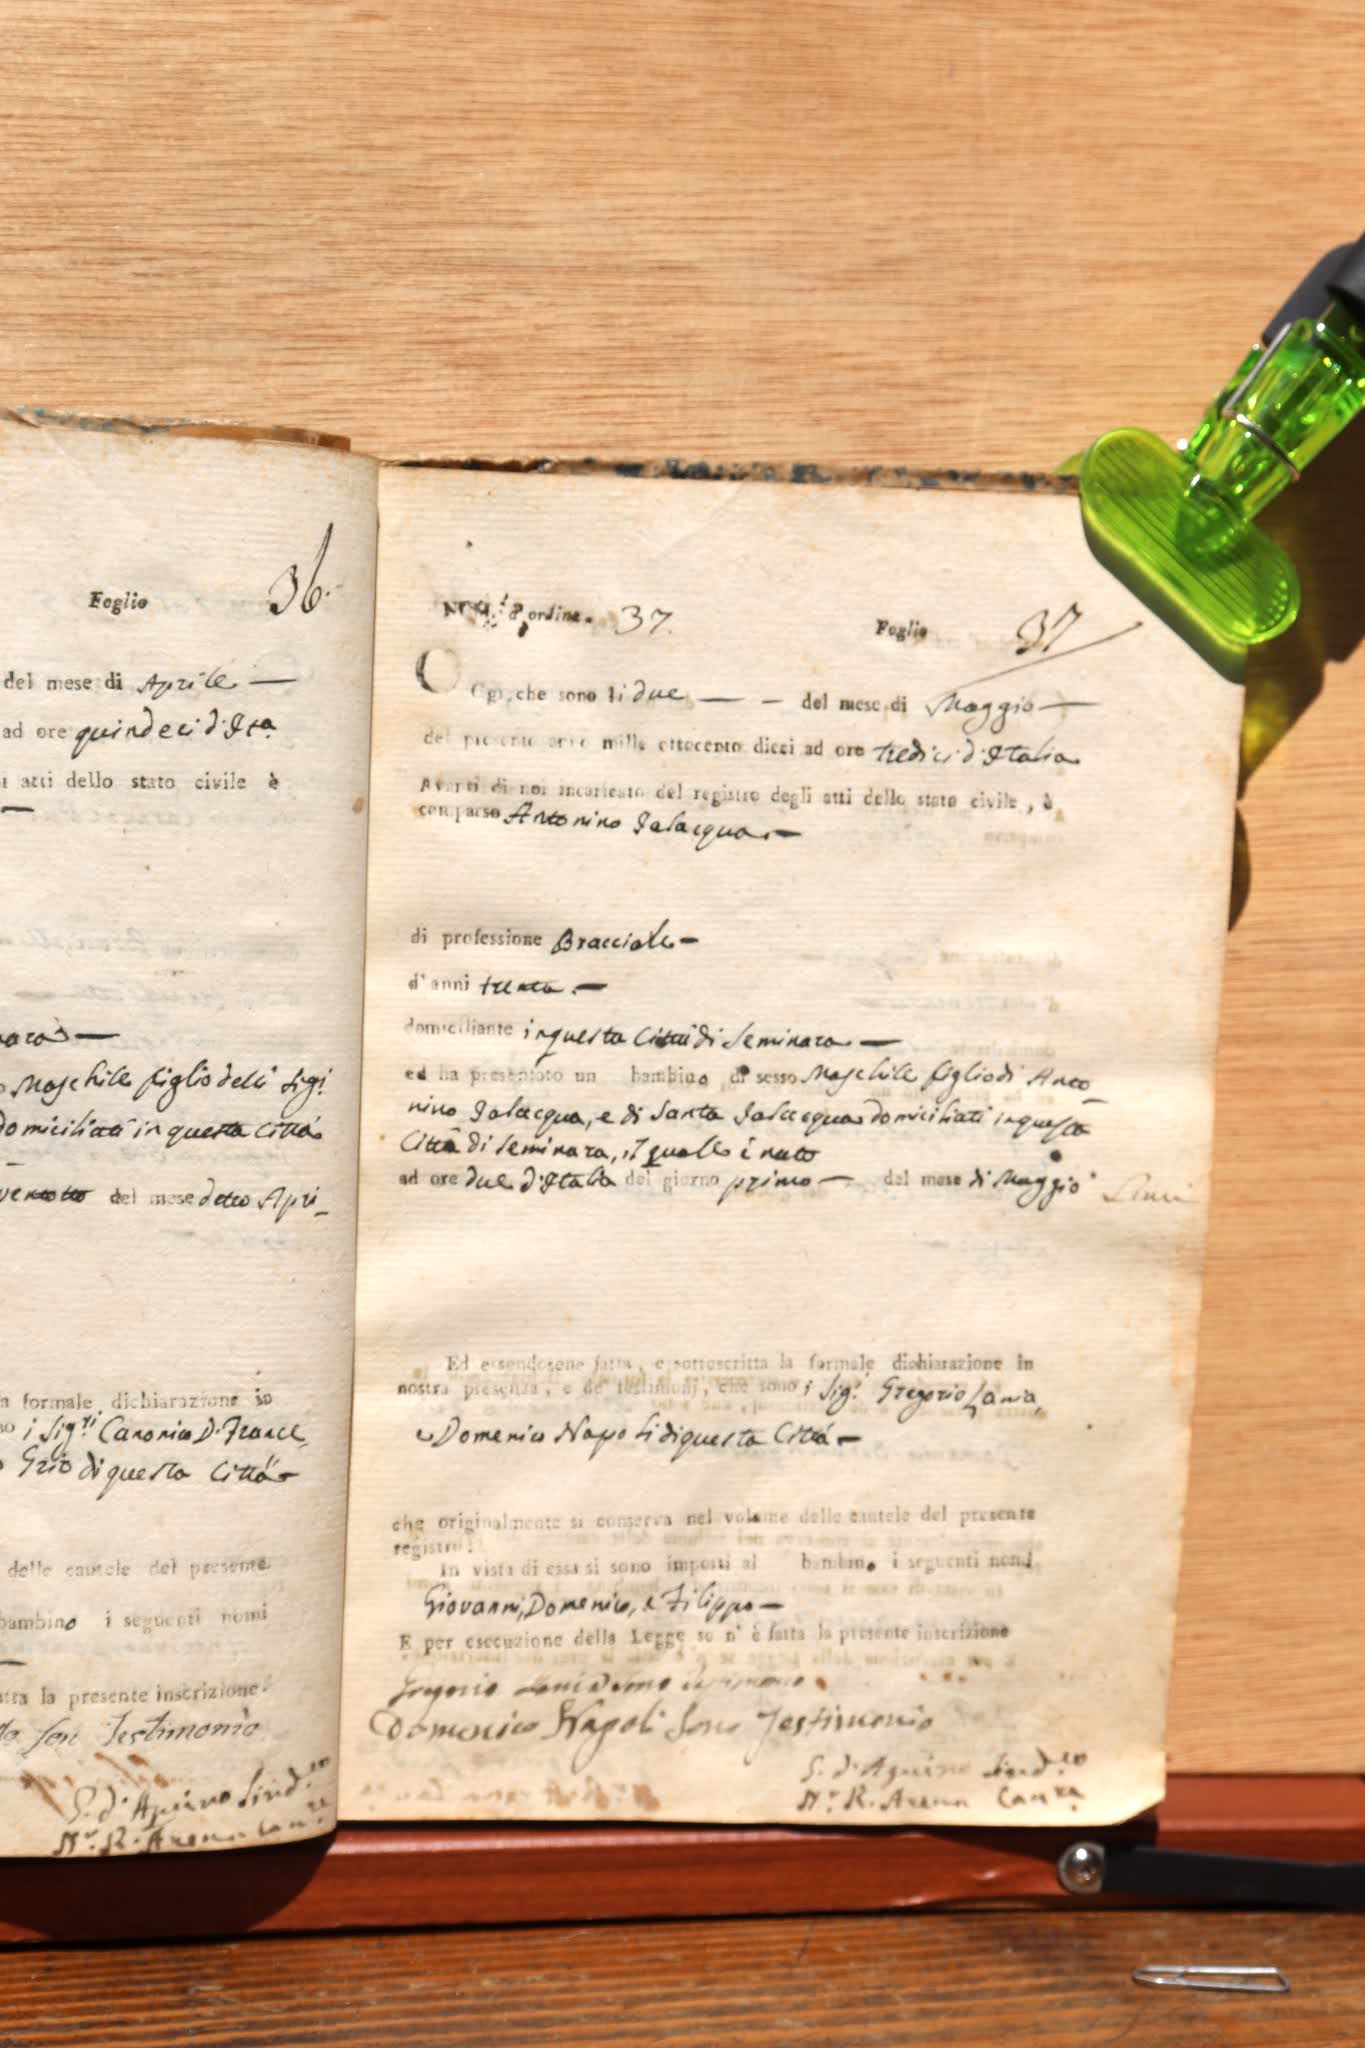 Foglio 36.
del mese di Aprile —
ad ore quindeci d'Ita.
i atti dello stato civile è
—
nara —
o Maschile figlio delli Sigi
domiciliati in questa Città
ventotto del mese detto Apri_
a formale dichiarazione in
no i Sig.ri Canonico D. France_
o Grio di questa Città —
delle cautele del presente
bambino i seguenti nomi
atta la presente inscrizione
Testimonio
S. d'Aquino Sind.co
N.r R. Arena Can.re
d'ordine. 37. Foglio 37
Oggi, che sono li due — — del mese di Maggio —
del presente anno mille ottocento dieci ad ore tredici d'Italia
Avanti di noi incaricato del registro degli atti dello stato civile, è
comparso Antonino Salacqua —
di professione Bracciale —
d'anni trenta. —
domiciliante in questa Città di Seminara —
ed ha presentato un bambino di sesso Maschile figlio di Anto_
nino Salacqua, e di Santa Salacqua domiciliati in questa
Città di Seminara, il quale è nato
ad ore due d'Italia del giorno primo — del mese di Maggio
Ed essendosene fatta, e sottoscritta la formale dichiarazione in
nostra presenza, e de' testimonj, che sono i Sig.i Gregorio
e Domenico Napoli di questa Città —
che originalmente si conserva nel volume delle cautele del presente
registro.
In vista di essa si sono imposti al bambino i seguenti nomi,
Giovanni, Domenico, e Filippo —
E per esecuzione della Legge se n' è fatta la presente inscrizione
Gregorio
Domenico Napoli Sono Testimonio
S. d'Aquino Sind.co
N.r R. Arena Can.re